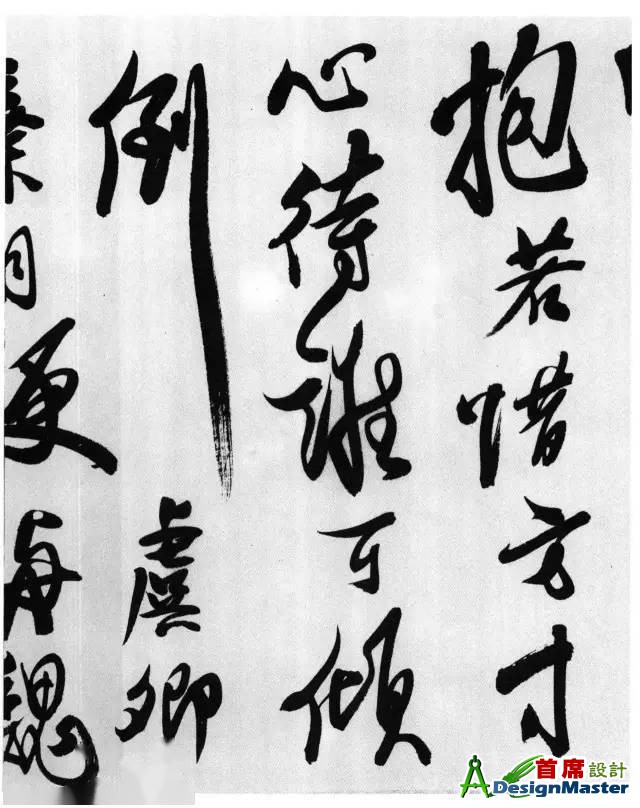 抱若惜方寸
心待誰可傾
倒虞卿
首席設計
DesignMaster